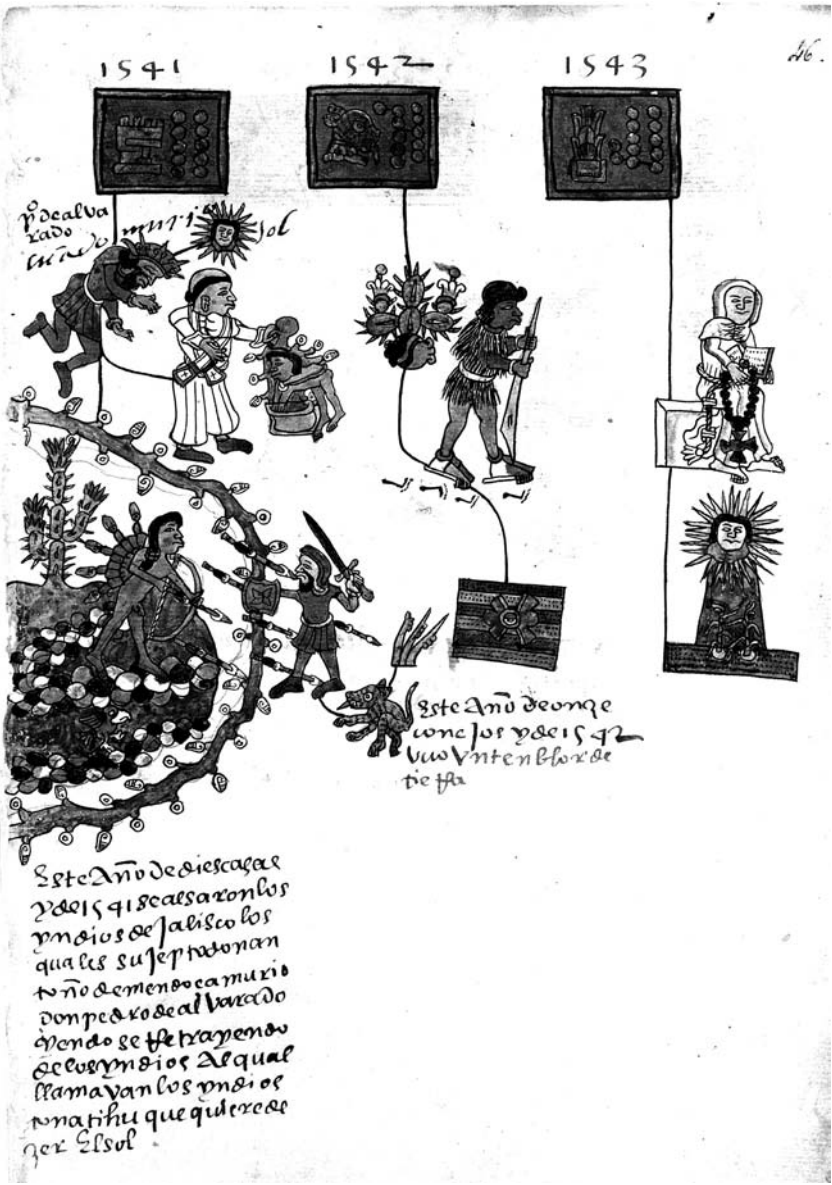 1541 1542 1543
46.
po dealva
rado
murio
sol
Este Año de onze
conejos y de 1542
vuo vn tenblor de
tierra
Este Año de diescasas
y de 1541 se alsaron los
yndios de Jalisco los
quales sujepto don an
toño de mendoca murio
Don pedro de alvarado
yendo se rretrayendo
de los yndios Al qual
llamavan los yndios
tonatihu que quiere de
zer El sol